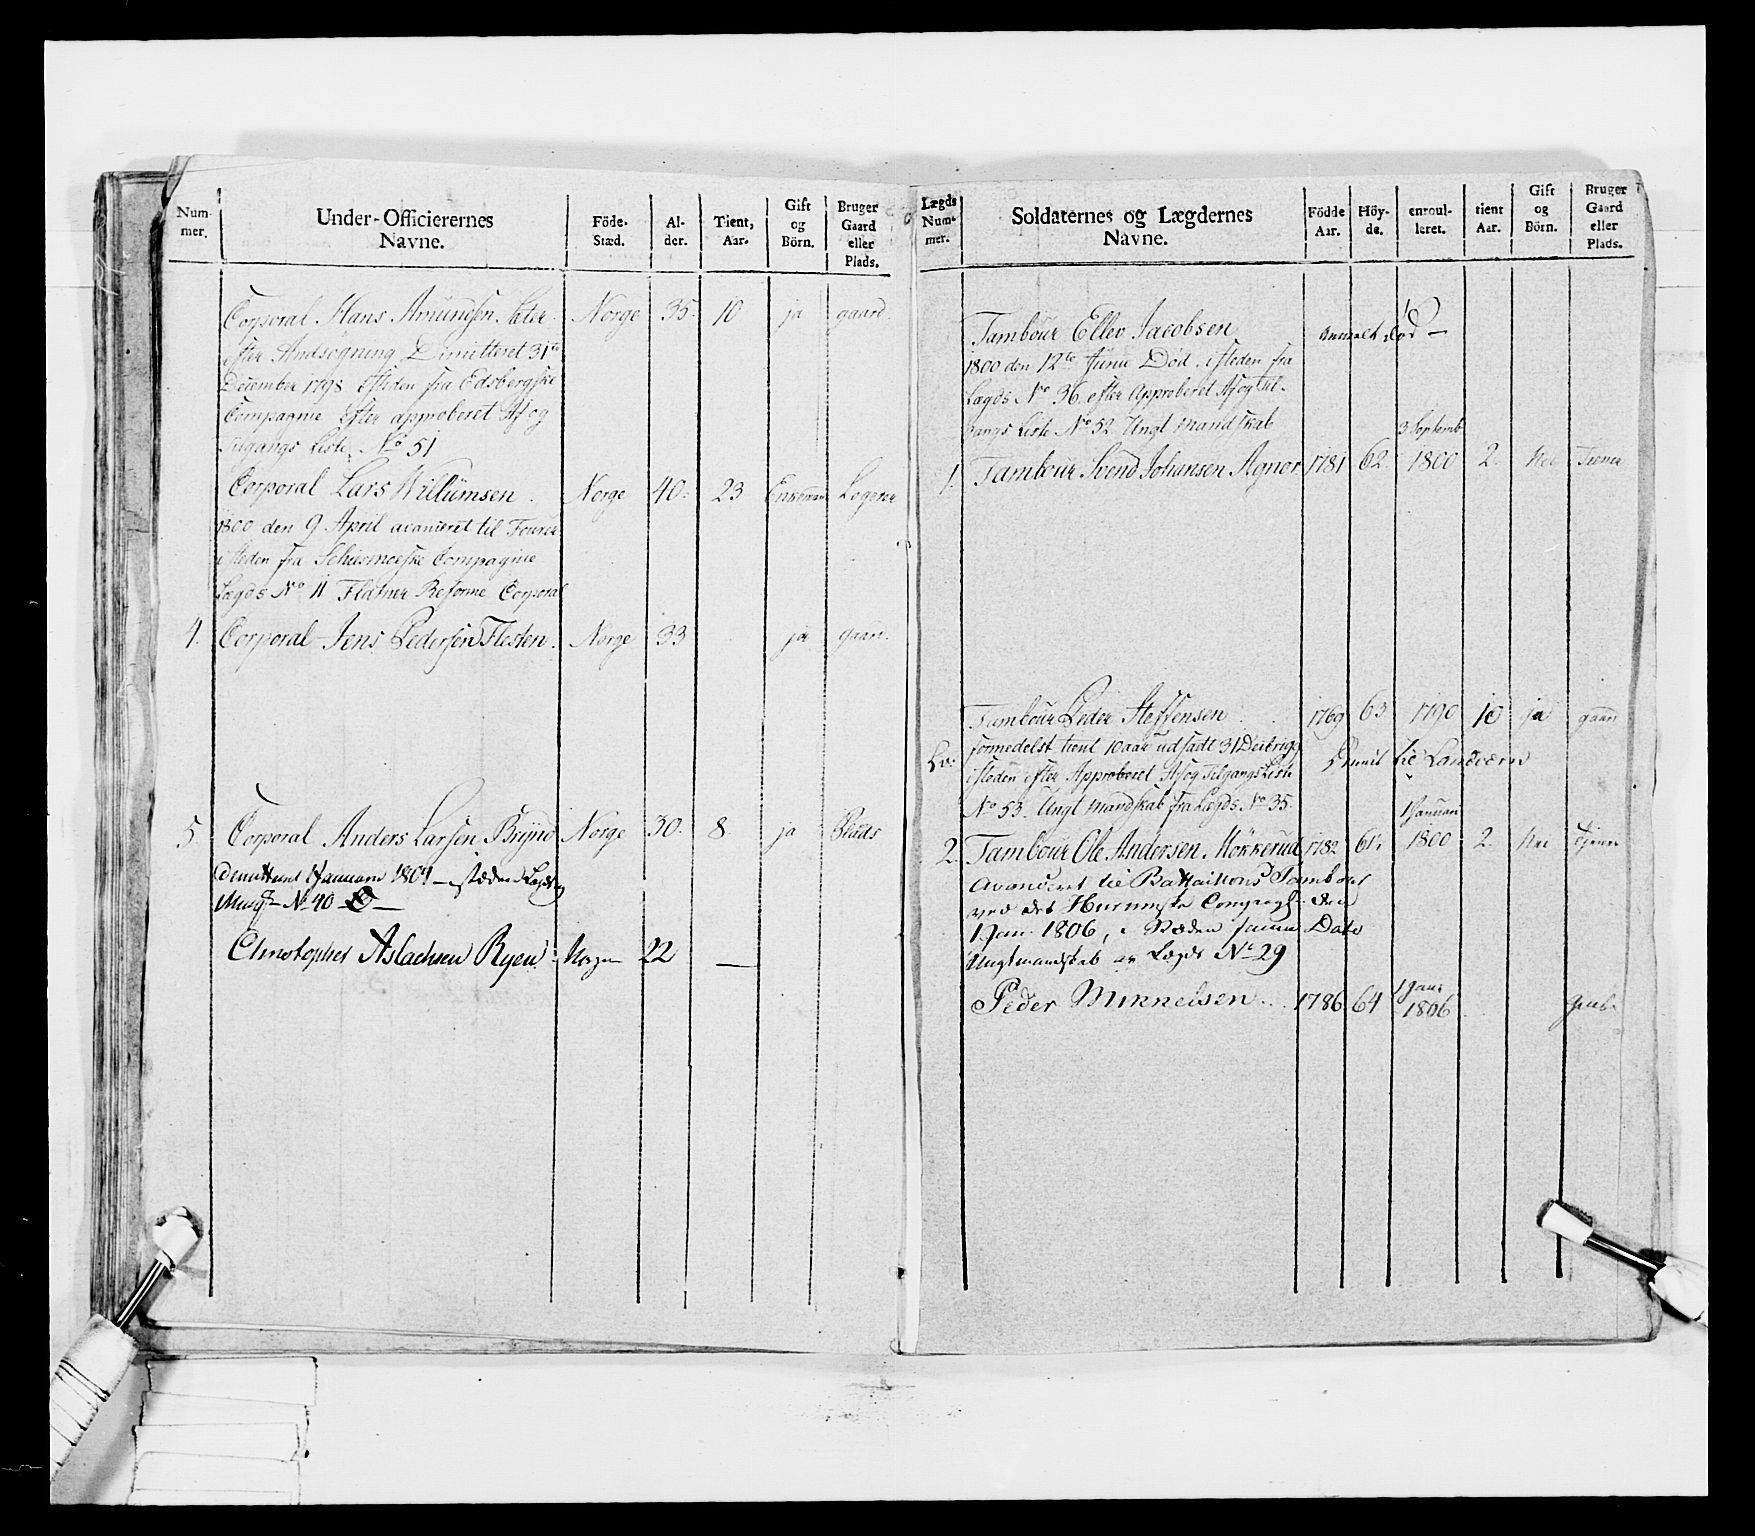 Num-
mer.
Under-Officierernes
Navne.
Föde-
Stæd.
Al-
der.
Tient,
Aar.
Gift
og
Börn.
Bruger
Gaard
eller
Plads.
Corporal Hans Amundsen Sæter. Norge 35. 10 ja gaard.
efter Andsøgning Dimitteret 31te
December 1798 isteden fra Edsbergske
Compagnie efter approberet Af og
Tilgangs Liste No 51
Corporal Lars Willumsen. Norge 40. 23 Enkemand Logerer
1800 den 9 April avanceret til Fourer
isteden fra Compagnie
Lægds No 11 Reforme Corporal
4. Corporal Jens Pedersen Flesten. Norge 33 ja gaard.
5. Corporal Anders Larsen Norge 30. 8. ja Plads
demitteret 1 Januarii 1801 - istæden Lægds
No 40
Christopher Aslachsen Ryen: Norge 22 —
Lægds
Num-
mer.
Soldaternes og Lægdernes
Navne.
Födde
Aar.
Höy-
de.
enroul-
leret.
tient
Aar.
Gift
og
Börn.
Bruger
Gaard
eller
Plads.
Tambour Ellev Jacobsen anmelt død —
1800 den 12te Junii Död, isteden fra
Lægds No 36 efter Approberet Af og Til-
gangs Liste No 52 Ungt Mandskab
3 Septemb
1. Tambour Svend Johansen Agnor 1781 62. 1800 2. Nei Tiener
Tambour Peder Steffensen. 1769 63 1790 10 ja gaard
formedelst tient 10 aar udsadt 31 Decbr
Lv. isteden efter Approberet Af og Tilgangs Liste til Landværn
No 53. Ungt Mandskab fra Lægds No 35.
1 Januari
2. Tambour Ole Andersen Mökkerud 1782 61. 1800 2. Nei Tjener
Avanceret til Battaillons Tambour
ved det Compagnie den
1 Jan. 1806, i Stæden samme Dato
Ungtmandskab av Lægds No 29
1 Jan:
Peder Mikkelsen.. 1786 64 1806